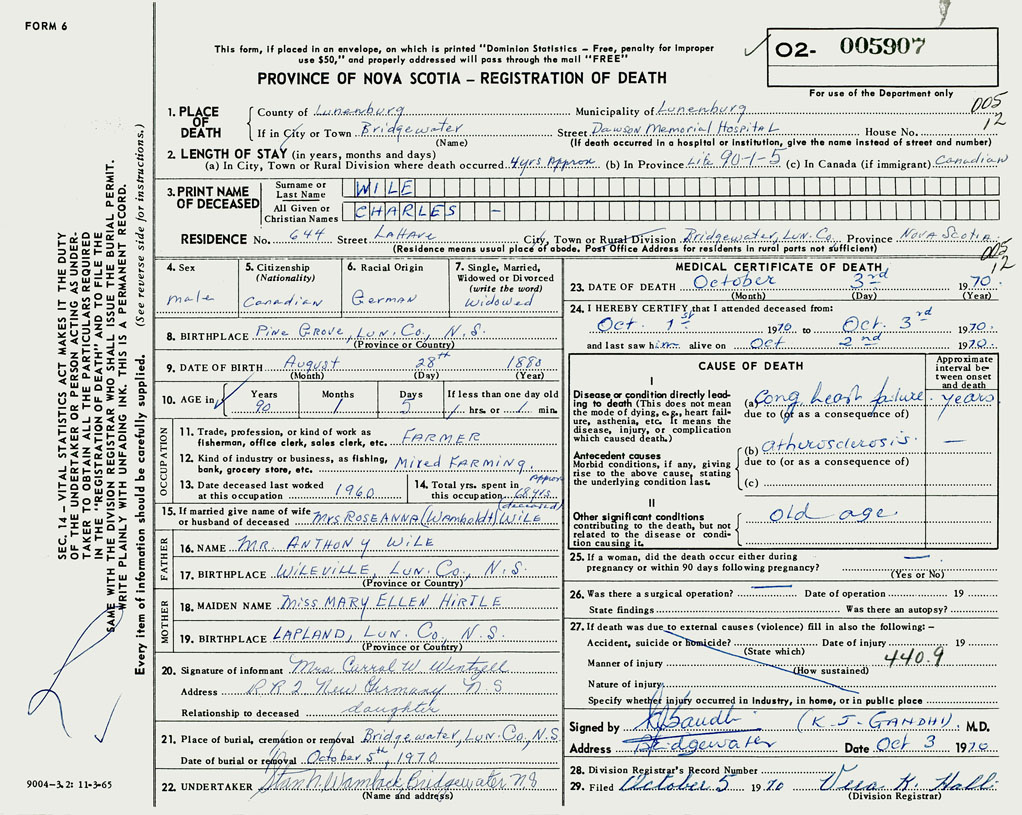 FORM 6
This form, if placed in an envelope, on which is printed "Dominion Statistics – Free, penalty for improper
use $50," and properly addressed will pass through the mail "FREE"
PROVINCE OF NOVA SCOTIA – REGISTRATION OF DEATH
02- 005907
For use of the Department only
005
12
1. PLACE OF DEATH
County of Lunenburg Municipality of Lunenburg
If in City or Town Bridgewater Street Dawson Memorial Hospital House No.
(Name) (If death occurred in a hospital or institution, give the name instead of street and number)
2. LENGTH OF STAY (in years, months and days)
(a) In City, Town or Rural Division where death occurred 4 yrs Approx (b) In Province Life 90-1-5 (c) In Canada (if immigrant) Canadian
3. PRINT NAME OF DECEASED
Surname or Last Name WILE
All Given or Christian Names CHARLES -
RESIDENCE No. 644 Street LaHave City, Town or Rural Division Bridgewater, Lun. Co. Province Nova Scotia
(Residence means usual place of abode. Post Office Address for residents in rural parts not sufficient)
005
12
4. Sex
male
5. Citizenship
(Nationality)
Canadian
6. Racial Origin
German
7. Single, Married,
Widowed or Divorced
(write the word)
Widowed
8. BIRTHPLACE Pine Grove, Lun. Co., N.S.
(Province or Country)
9. DATE OF BIRTH August 28th 1880
(Month) (Day) (Year)
10. AGE in Years Months Days If less than one day old
90 1 5 / hrs. or / min.
OCCUPATION
11. Trade, profession, or kind of work as
fisherman, office clerk, sales clerk, etc. FARMER
12. Kind of industry or business, as fishing,
bank, grocery store, etc. Mixed FARMING
13. Date deceased last worked
at this occupation 1960
14. Total yrs. spent in
this occupation Approx 68 yrs.
15. If married give name of wife
or husband of deceased Mrs ROSEANNA (Wamboldt) WILE (deceased)
FATHER
16. NAME MR. ANTHONY WILE
17. BIRTHPLACE WILEVILLE, LUN. CO., N.S.
(Province or Country)
MOTHER
18. MAIDEN NAME MISS MARY ELLEN HIRTLE
19. BIRTHPLACE LAPLAND, LUN. CO., N.S.
(Province or Country)
20. Signature of informant Mrs. Curral W. Wentzell
Address R.R.2 New Germany N.S
Relationship to deceased daughter
21. Place of burial, cremation or removal Bridgewater, Lun. Co, N.S
Date of burial or removal October 5th, 1970
22. UNDERTAKER Bridgewater NS
(Name and address)
MEDICAL CERTIFICATE OF DEATH
23. DATE OF DEATH October 3rd 1970.
(Month) (Day) (Year)
24. I HEREBY CERTIFY that I attended deceased from:
Oct. 1st 1970 to Oct. 3rd 1970.
and last saw him alive on Oct 2nd 1970.
CAUSE OF DEATH
Approximate
interval be-
tween onset
and death
I
Disease or condition directly lead-
ing to death (This does not mean
the mode of dying, e.g., heart fail-
ure, asthenia, etc. It means the
disease, injury, or complication
which caused death.)
(a) Cong heart failure years
due to (or as a consequence of)
Antecedent causes
Morbid conditions, if any, giving
rise to the above cause, stating
the underlying condition last.
(b) atherosclerosis. —
due to (or as a consequence of)
(c)
II
Other significant conditions
contributing to the death, but not
related to the disease or condi-
tion causing it.
old age
25. If a woman, did the death occur either during
pregnancy or within 90 days following pregnancy? —
(Yes or No)
26. Was there a surgical operation? — Date of operation 19
State findings Was there an autopsy?
27. If death was due to external causes (violence) fill in also the following: –
Accident, suicide or homicide? Date of injury 19
(State which)
Manner of injury 440.9
(How sustained)
Nature of injury
Specify whether injury occurred in industry, in home, or in public place
Signed by K J Gandhi (K. J. GANDHI) M.D.
Address Bridgewater Date Oct 3 1970
28. Division Registrar's Record Number
29. Filed October 5 1970 Vera K. Hall
(Division Registrar)
SEC. 14 – VITAL STATISTICS ACT MAKES IT THE DUTY
OF THE UNDERTAKER OR PERSON ACTING AS UNDER-
TAKER TO OBTAIN ALL THE PARTICULARS REQUIRED
IN THE "REGISTRATION OF DEATH" AND TO FILE THE
SAME WITH THE DIVISION REGISTRAR WHO SHALL ISSUE THE BURIAL PERMIT.
WRITE PLAINLY WITH UNFADING INK. THIS IS A PERMANENT RECORD.
Every item of information should be carefully supplied. (See reverse side for instructions.)
9004–3.2: 11-3-65